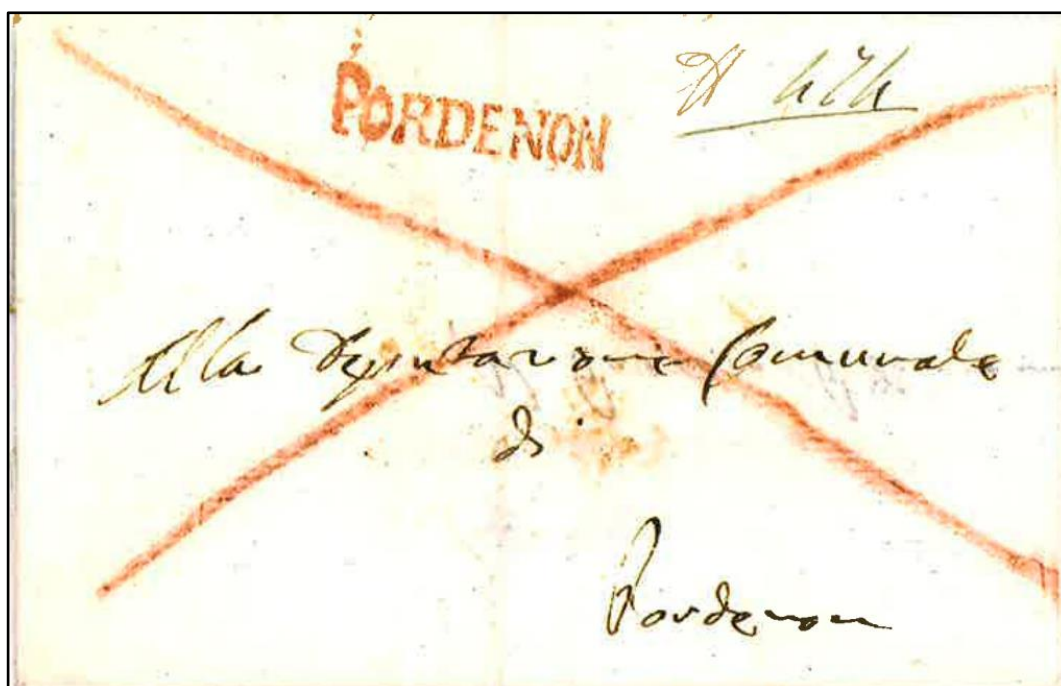 PORDENON
Alla Deputazione Comunale
di
Pordenon